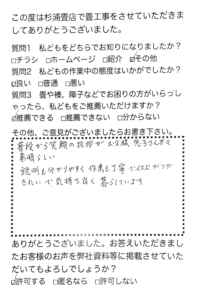 この度は杉浦畳店で畳工事をさせていただきま
してありがとうございました。
質問1 私どもをどちらでお知りになりましたか？
□チラシ □ホームページ □紹介 ☑その他
質問2 私どもの作業中の態度はいかがでしたか？
☑良い □普通 □悪い
質問3 畳や襖、障子などでお困りの方がいらっし
ゃったら、私どもをご推薦いただけますか？
☑推薦できる □推薦できない □分からない
その他、ご意見がございましたらお書き下さい。
普段から笑顔の挨拶が
素晴らしい
説明も分かりやすく作業も丁寧で仕上がりが
きれいで気持ち良く暮らしています
ありがとうございました。お答えいただきまし
たお客様のお声を弊社資料等に掲載させていた
だいてもよろしでしょうか？
☑許可する □匿名なら □許可しない